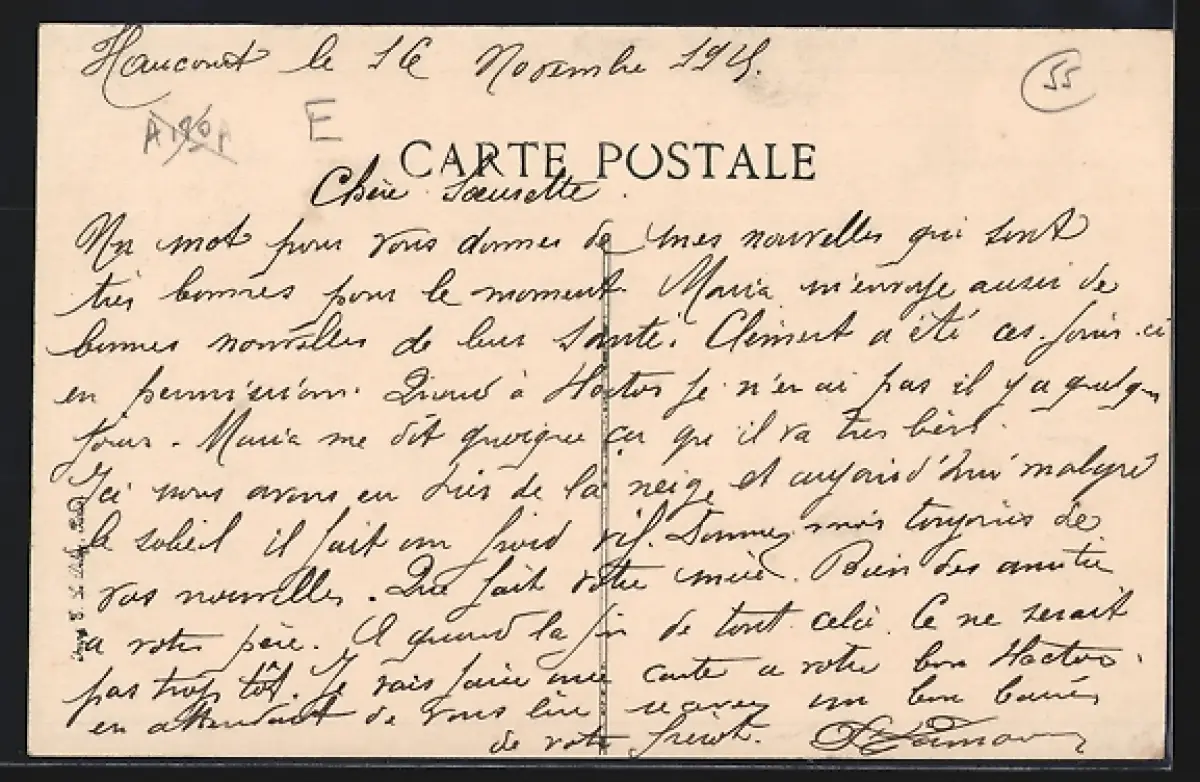 Haucourt le 16 Novembre 1915.
55
A190A
E
CARTE POSTALE
Chère Sœurette.
Un mot pour vous donner de mes nouvelles qui sont
très bonnes pour le moment. Maria m'envoye aussi de
bonnes nouvelles de leur santé. Clément a été ces jours-ci
en permission. Quand à Hector je n'en ai pas il y a quelques
jours. Maria me dit quoique ça que il va très bien.
Ici nous avons eu hier de la neige et aujourd'hui malgré
le soleil il fait un froid vif. Donnez mois toujours de
vos nouvelles. Que fait votre mère. Bien des amitié
a votre père. A quand la fin de tout cela. Ce ne serait
pas trop tôt. Je vais faire une carte a votre bon Hector.
en attendant de vous lire recevez un bon baiser
de votre frérot.